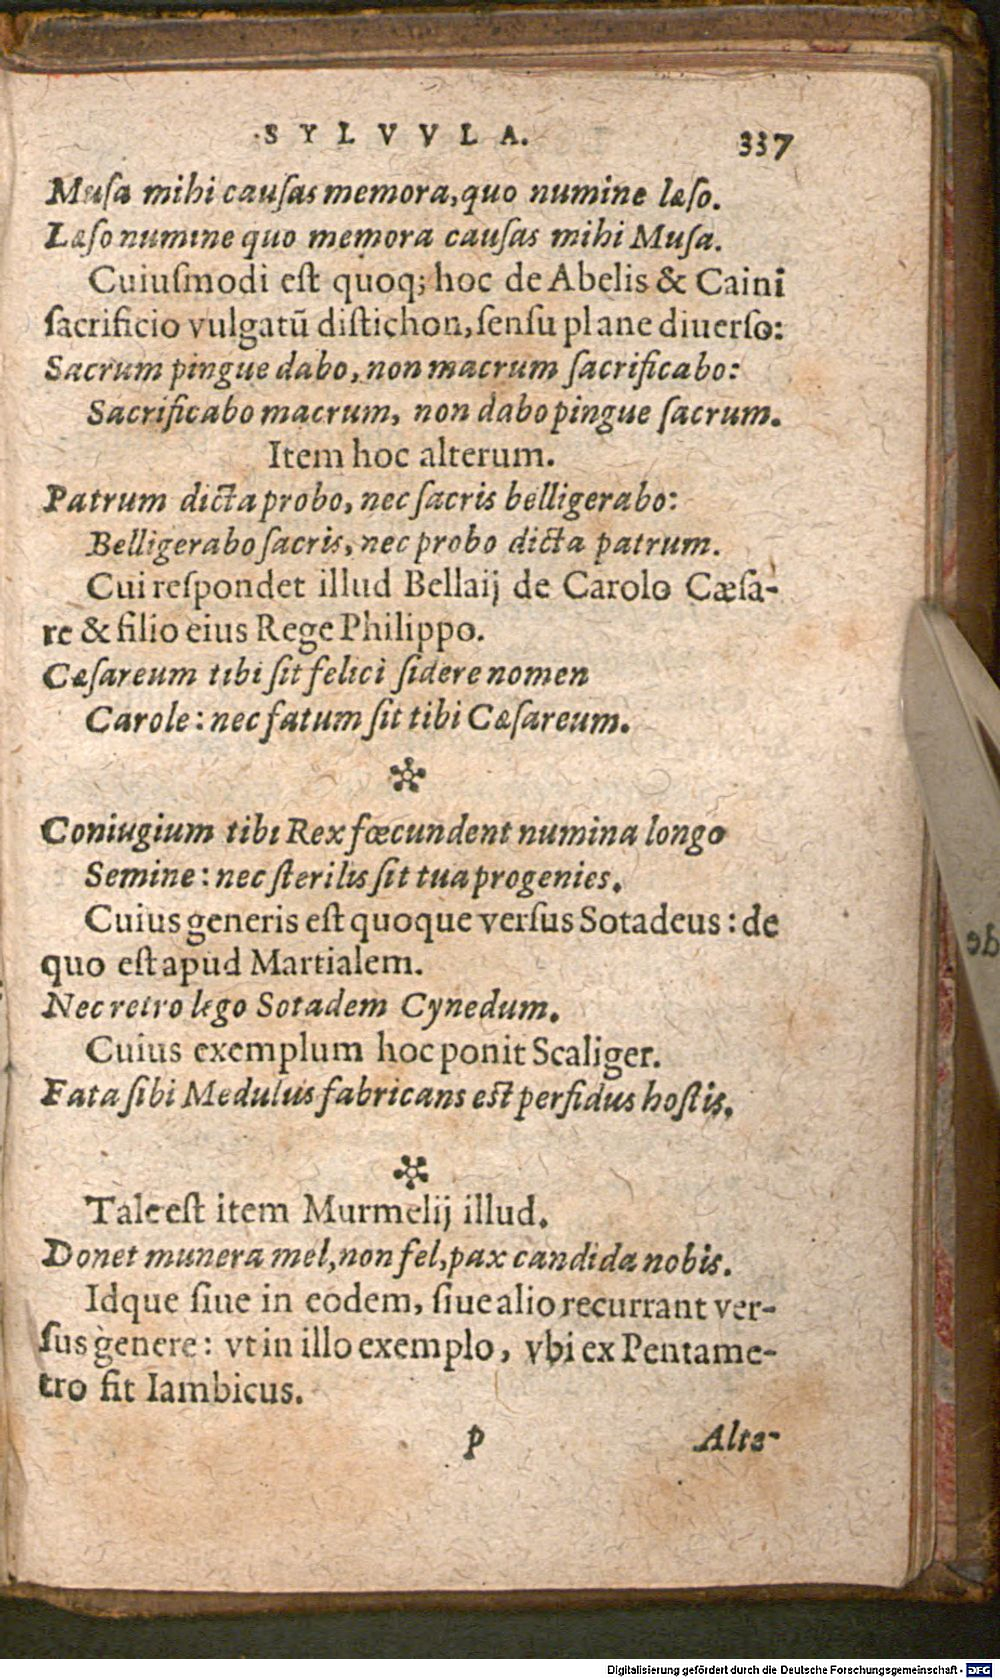 SYLVVLA. 337
Muſa mihi cauſas memora, quo numine læſo.
Læſo numine quo memora cauſas mihi Muſa.
Cuiuſmodi eſt quoq; hoc de Abelis & Caini
ſacrificio vulgatū diſtichon, ſenſu plane diuerſo:
Sacrum pingue dabo, non macrum ſacrificabo:
Sacrificabo macrum, non dabo pingue ſacrum.
Item hoc alterum.
Patrum dicta probo, nec ſacris belligerabo:
Belligerabo ſacris, nec probo dicta patrum.
Cui reſpondet illud Bellaij de Carolo Cæſa-
re & filio eius Rege Philippo.
Cæſareum tibi ſit felici ſidere nomen
Carole: nec fatum ſit tibi Cæſareum.
Coniugium tibi Rex fœcundent numina longo
Semine: nec ſterilis ſit tua progenies.
Cuius generis eſt quoque verſus Sotadeus: de
quo eſt apud Martialem.
Nec retro lego Sotadem Cynedum.
Cuius exemplum hoc ponit Scaliger.
Fata ſibi Medulus fabricans eſt perfidus hoſtis.
Tale eſt item Murmelij illud.
Donet munera mel, non fel, pax candida nobis.
Idque ſiue in eodem, ſiue alio recurrant ver-
ſus genere: vt in illo exemplo, vbi ex Pentame-
tro fit Iambicus.
p Alte-
de
Digitalisierung gefördert durch die Deutsche Forschungsgemeinschaft - DFG